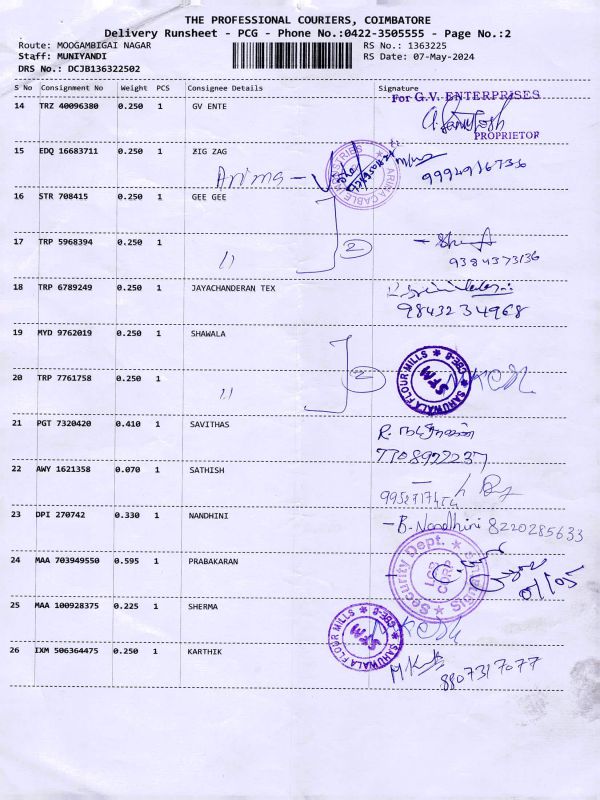 THE PROFESSIONAL COURIERS, COIMBATORE
Delivery Runsheet - PCG - Phone No.:0422-3505555 - Page No.:2
Route: MOOGAMBIGAI NAGAR RS No.: 1363225
Staff: MUNIYANDI RS Date: 07-May-2024
DRS No.: DCJB136322502
S No Consignment No Weight PCS Consignee Details Signature
For G.V. ENTERPRISES
14 TRZ 40096380 0.250 1 GV ENTE
PROPRIETOR
15 EDQ 16683711 0.250 1 ZIG ZAG
Arima -
ARIMA CABLE INDUSTRIES
9994916736
16 STR 708415 0.250 1 GEE GEE
17 TRP 5968394 0.250 1
11 2
9384373136
18 TRP 6789249 0.250 1 JAYACHANDERAN TEX
9843234968
19 MYD 9762019 0.250 1 SHAWALA
20 TRP 7761758 0.250 1
11 2
SAHUWALA FLOUR MILLS * CBE-8 *
SFM
21 PGT 7320420 0.410 1 SAVITHAS
R.
7708922237
22 AWY 1621358 0.070 1 SATHISH
23 DPI 270742 0.330 1 NANDHINI
- B. Nandhini 8220285633
24 MAA 703949550 0.595 1 PRABAKARAN
Security Dept.
25 MAA 100928375 0.225 1 SHERMA
SAHUWALA FLOUR MILLS * CBE-8 *
SFM
26 IXM 506364475 0.250 1 KARTHIK
8807317077